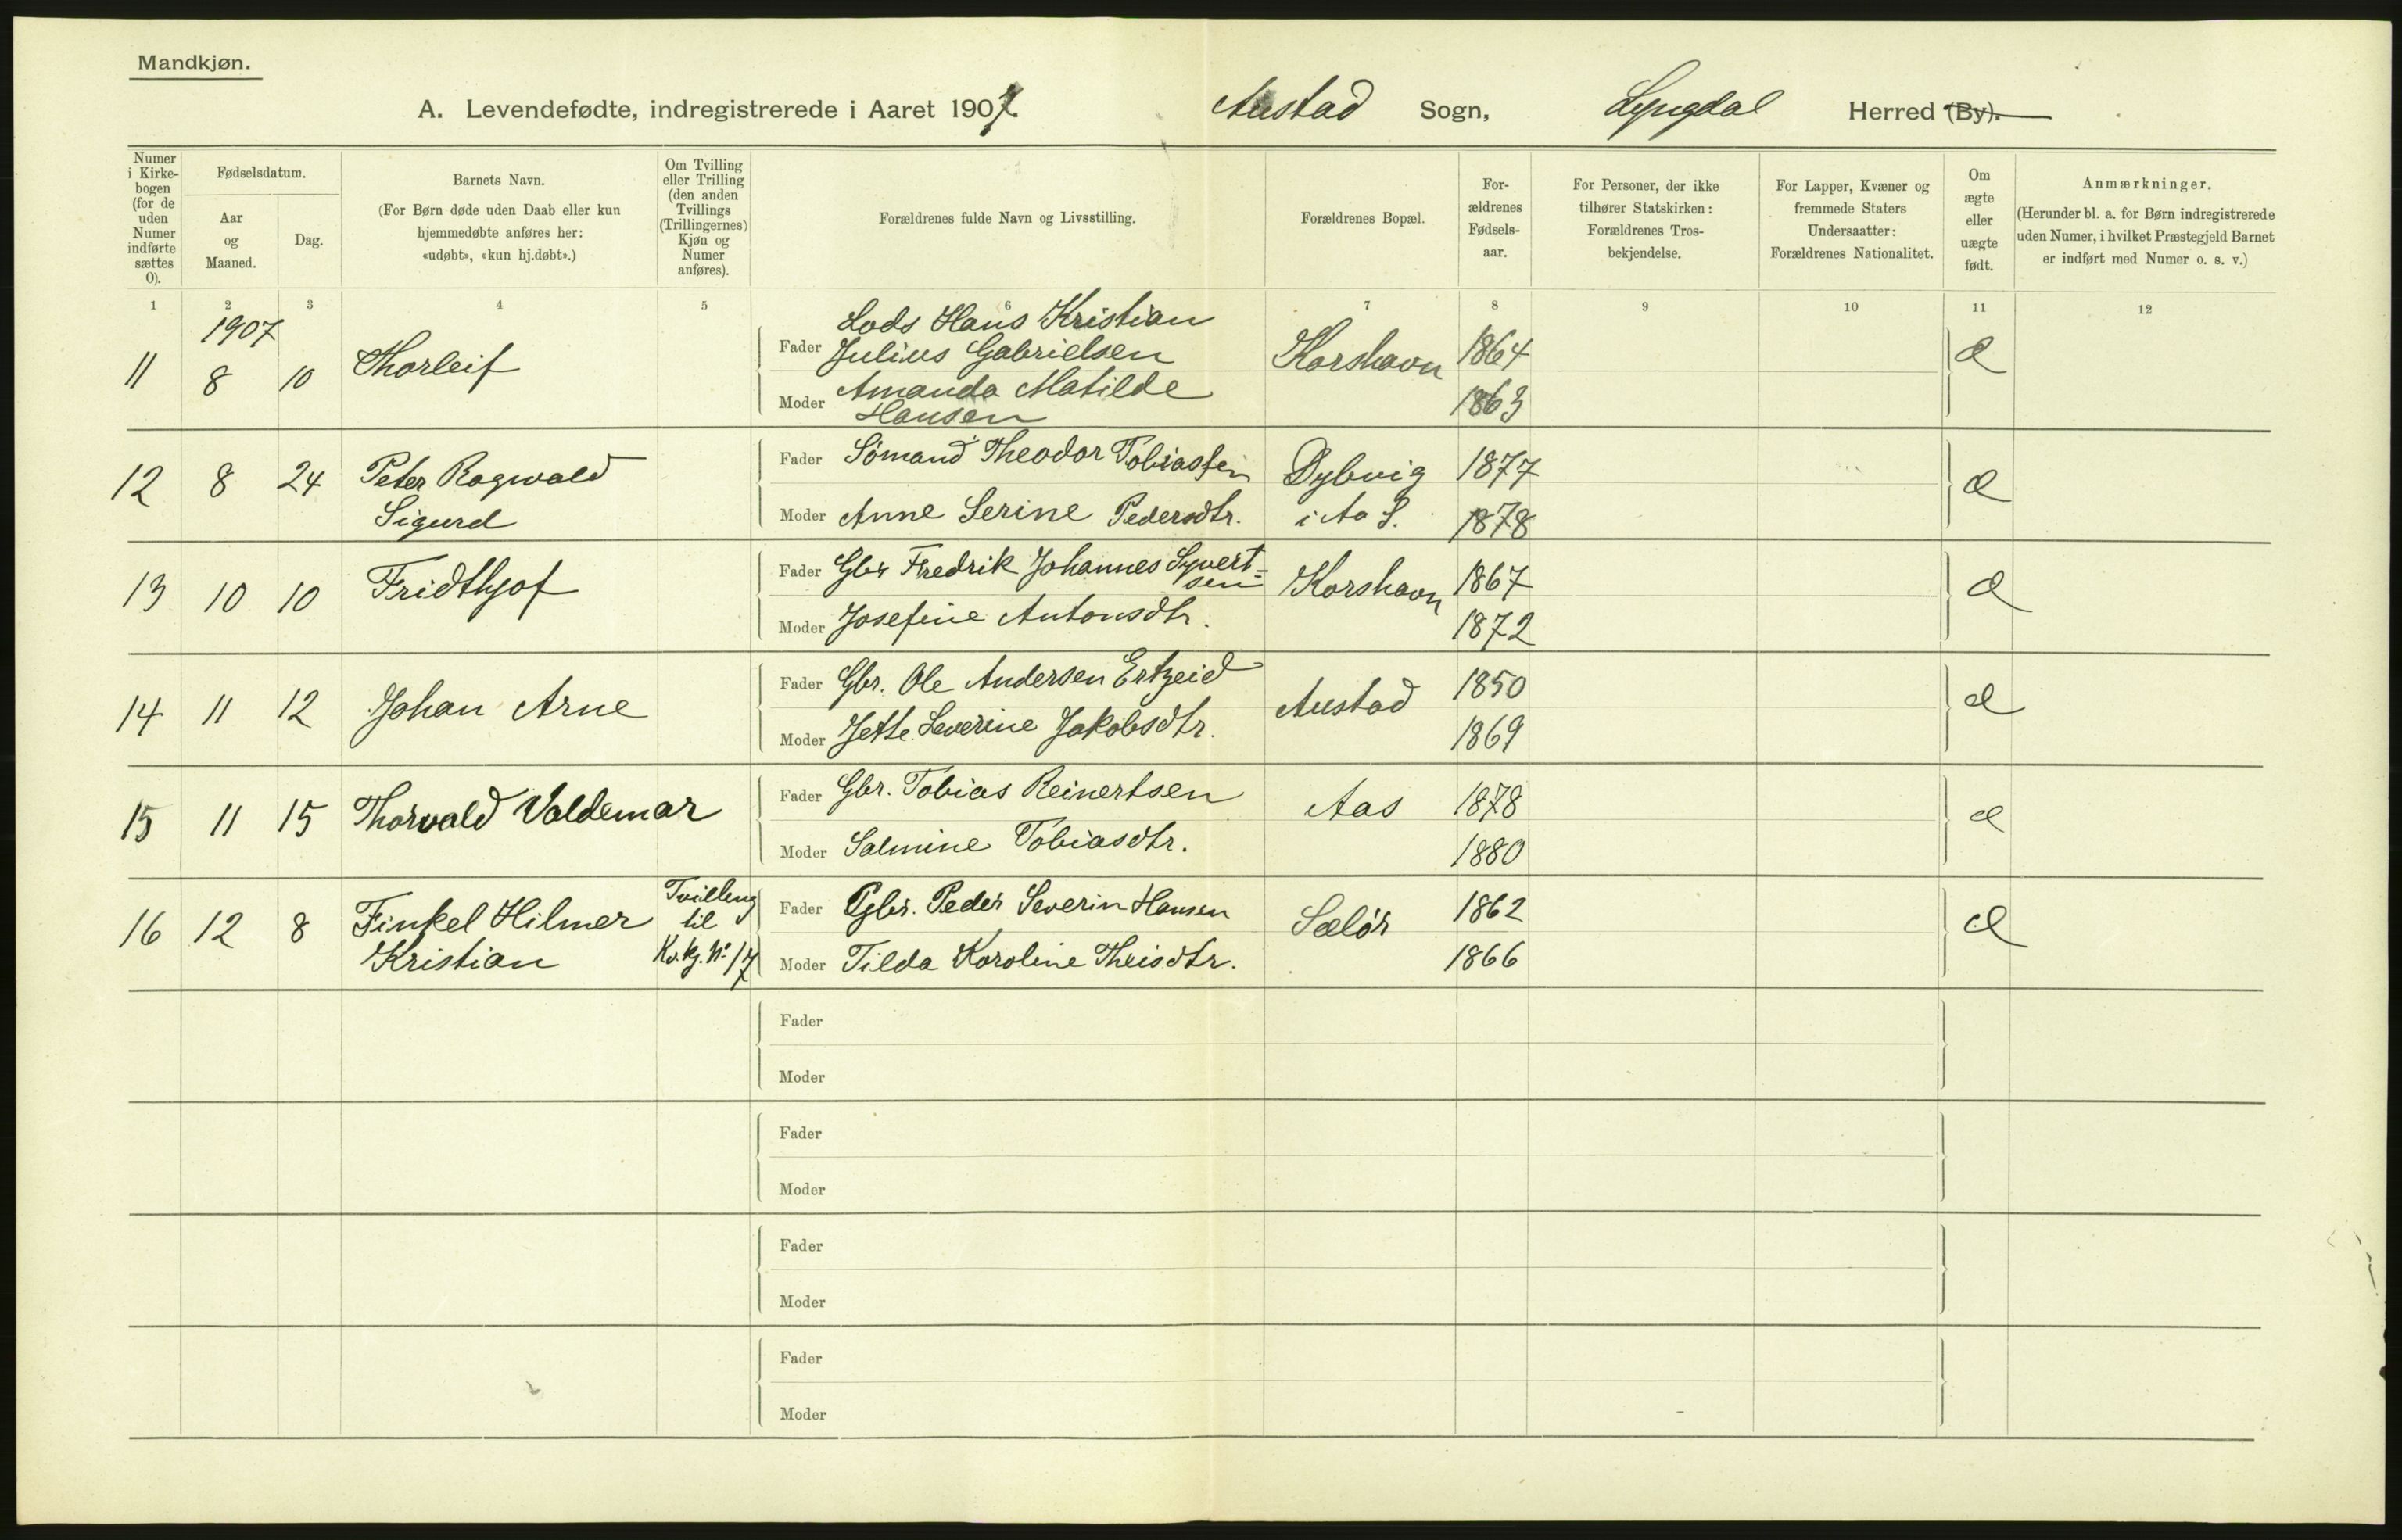 Mandkjøn.
A. Levendefødte, indregistrerede i Aaret 1907. Austad Sogn, Lyngdal Herred (By).
Numer i Kirke-bogen (for de uden Numer indførte sættes 0).
Fødselsdatum.
Aar og Maaned.
Dag.
Barnets Navn.
(For Børn døde uden Daab eller kun hjemmedøbte anføres her: «udøbt», «kun hj.døbt».)
Om Tvilling eller Trilling (den anden Tvillings (Trillingernes) Kjøn og Numer anføres).
Forældrenes fulde Navn og Livsstilling.
Forældrenes Bopæl.
For-ældrenes Fødsels-aar.
For Personer, der ikke tilhører Statskirken: Forældrenes Tros-bekjendelse.
For Lapper, Kvæner og fremmede Staters Undersaatter: Forældrenes Nationalitet.
Om ægte eller uægte født.
Anmærkninger.
(Herunder bl. a. for Børn indregistrerede uden Numer, i hvilket Præstegjeld Barnet er indført med Numer o. s. v.)
1 2 3 4 5 6 7 8 9 10 11 12
1907
11 8 10 Thorleif
Fader Lods Hans Kristian Julius Gabrielsen Korshavn 1864 Æ
Moder Amanda Matilde Hansen 1863
12 8 24 Peter Ragwald Sigurd
Fader Sömand Theodor Tobiassen Dybvig i Aa S. 1877 Æ
Moder Anne Serine Pedersdtr. 1878
13 10 10 Fridthjof
Fader Gbr Fredrik Johannes Syvert=sen Korshavn 1867 Æ
Moder Josefine Antonsdtr. 1872
14 11 12 Johan Arne
Fader Gbr. Ole Andersen Ertzeid Austad 1850 Æ
Moder Jette Severine Jakobsdtr. 1869
15 11 15 Thorvald Valdemar
Fader Gbr. Tobias Reinertsen Aas 1878 Æ
Moder Salmine Tobiasdtr. 1880
16 12 8 Finkel Hilmer Kristian Tvilling til Kv.kj. No 17
Fader Gbr. Peder Severin Hansen Sælör 1862 Æ
Moder Tilda Karoline Theisdtr. 1866
Fader
Moder
Fader
Moder
Fader
Moder
Fader
Moder